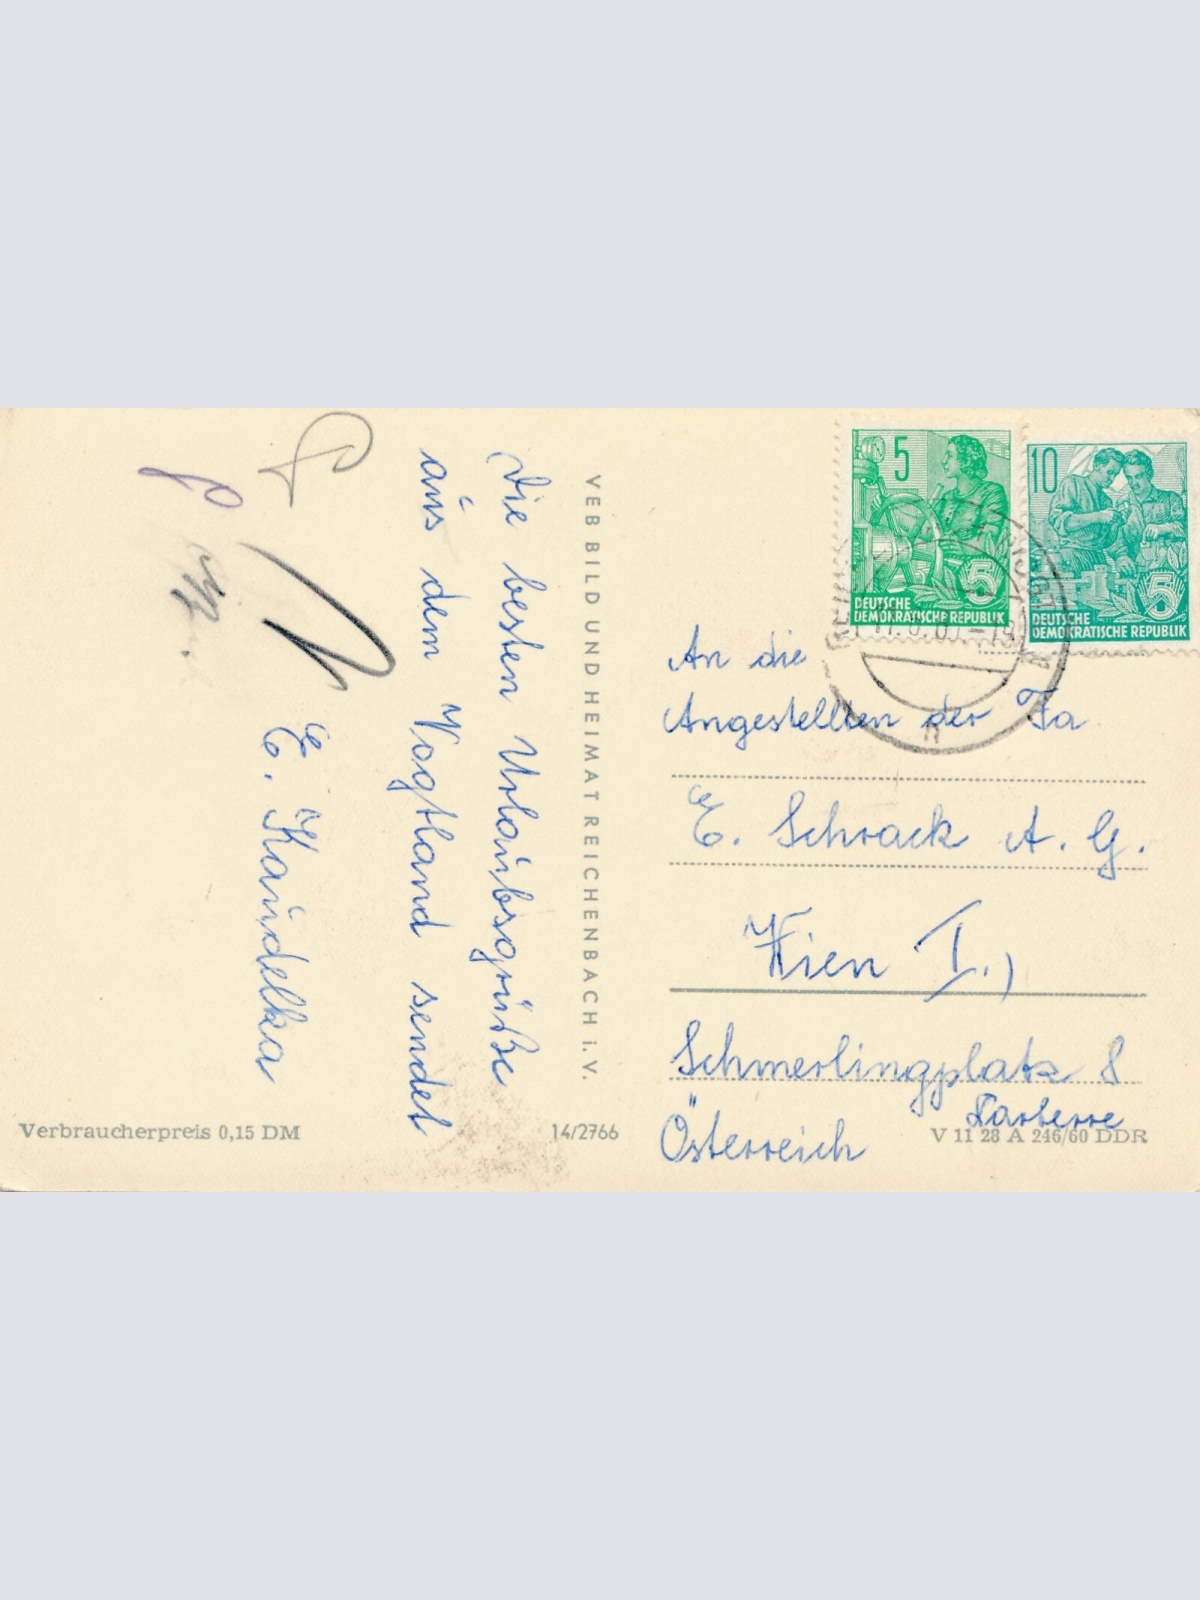 Die besten Urlaubsgrüße
aus dem Vogtland sendet
E. Kaudelka
VEB BILD UND HEIMAT REICHENBACH i. V.
5
DEUTSCHE
DEMOKRATISCHE REPUBLIK
10
DEUTSCHE
DEMOKRATISCHE REPUBLIK
An die
Angestellten der Fa
E. Schrack A. G.
Wien I.)
Schmerlingplatz 8
Parterre
Österreich
Verbraucherpreis 0,15 DM
14/2766
V 11 28 A 246/60 DDR